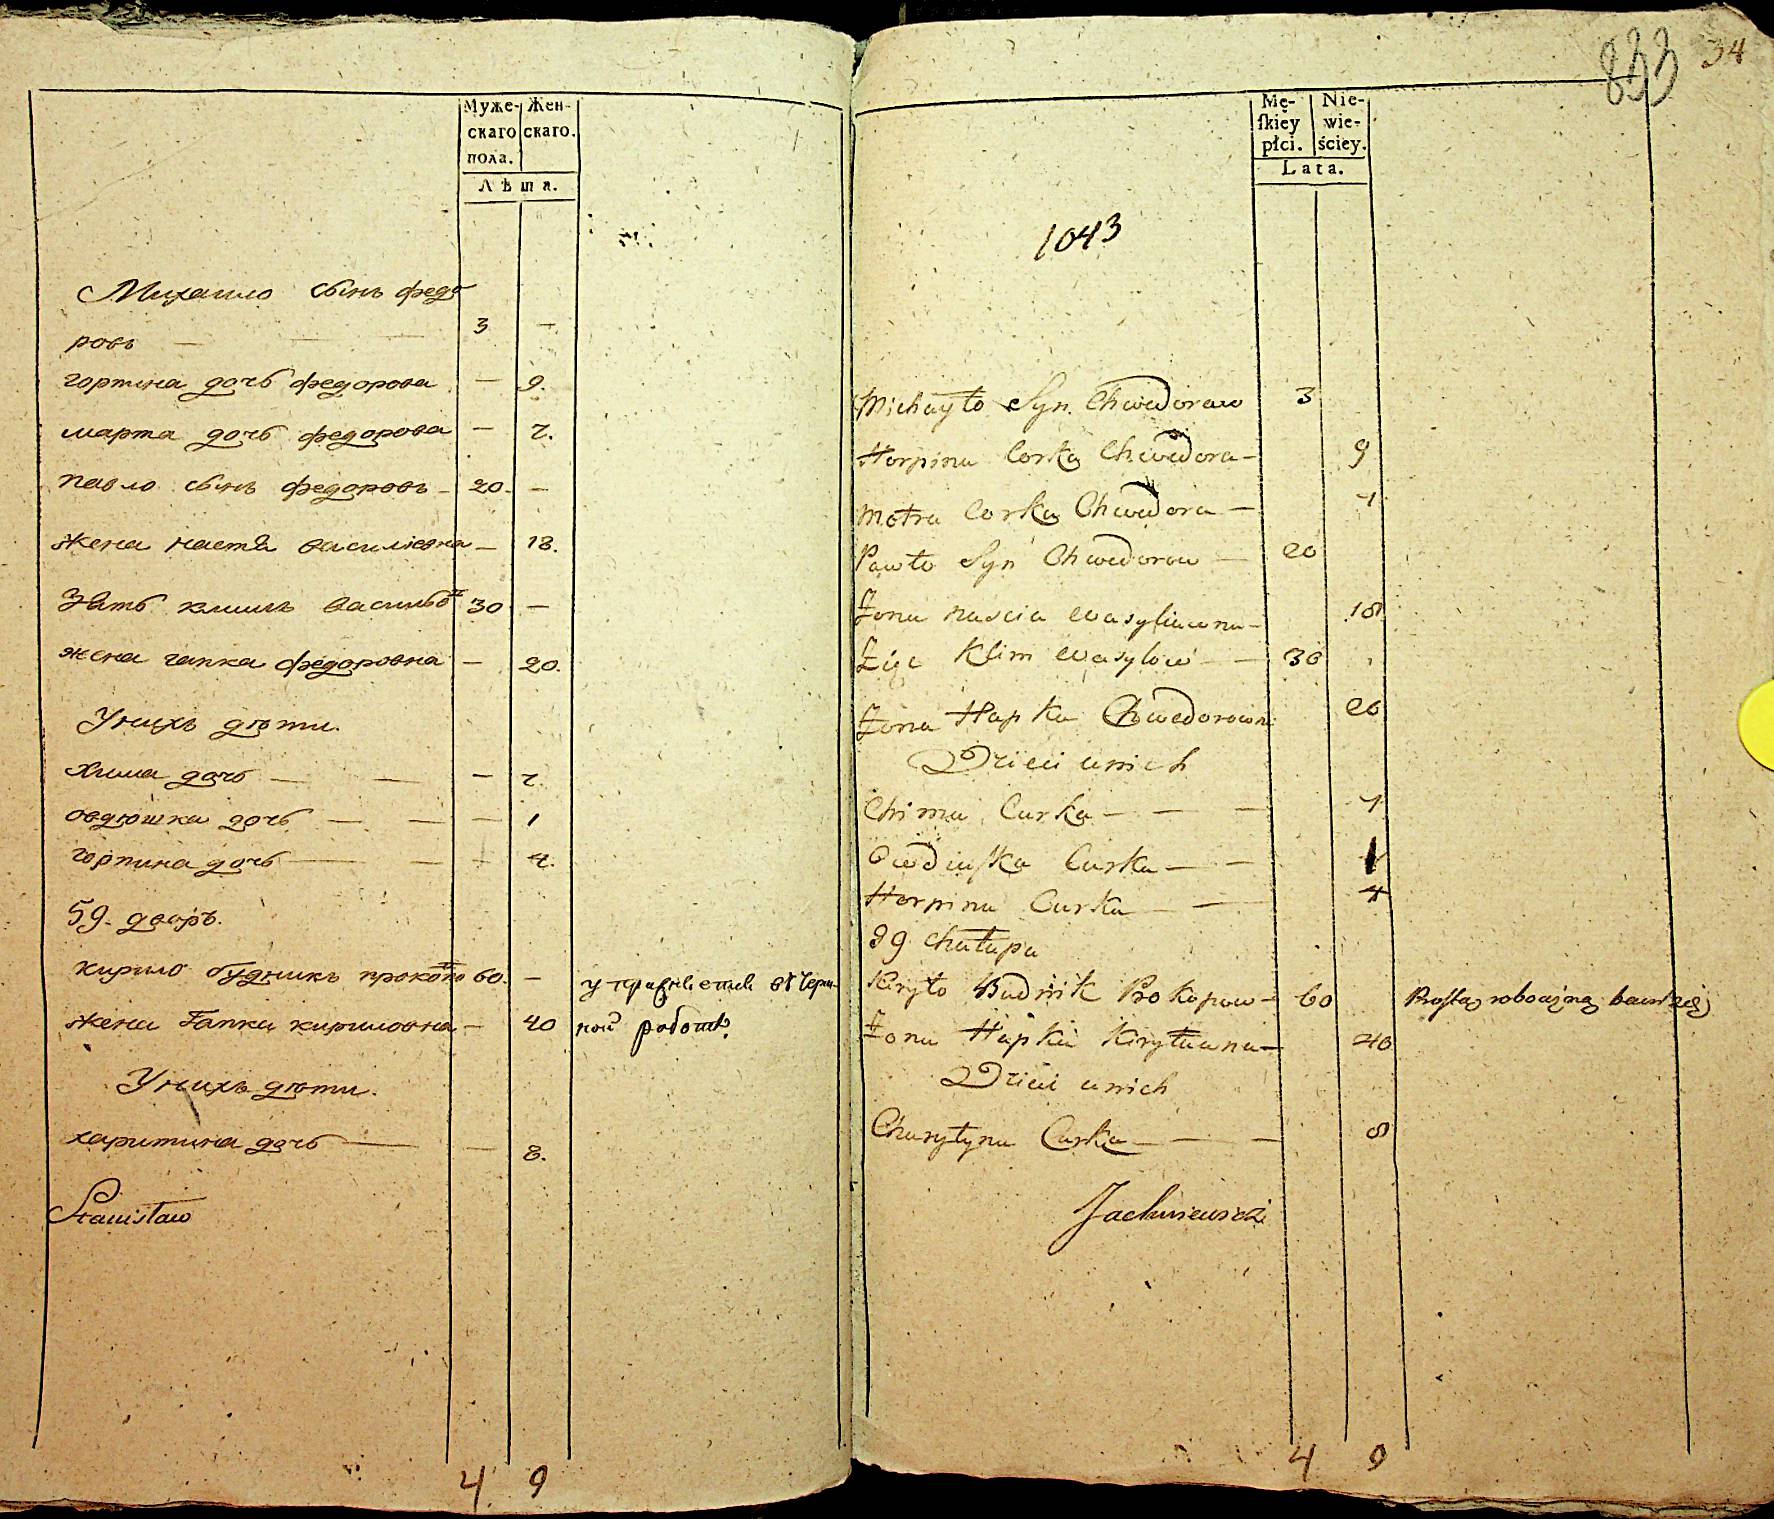 Муже-
скаго
пола.
Жен-
скаго.
Лѣта.
Михаило сынъ федо
ровъ — — — 3 —
горпина дочь федорова — 9.
марта дочь федорова — 7.
павло сынъ федоровъ — 20. —
жена настя василювна — 18.
Зять климъ васильов 30 —
жена гапка федоровна — 20.
У нихъ дѣти.
хима дочь — — — 7.
овдюшка дочь — — — 1
горпина дочь — — — 4.
59. дворъ.
кирило будникъ прокопов 60. — у
жена Гапка кириловна — 40 ной работѣ
У нихъ дѣти.
харитина дочь — — 8.
Stanisław
4 9
833 34
Mę-
ſkiey
płci.
Nie-
wie-
ściey.
Lata.
1043
Michayło Syn Chwedorow 3
Horpina Corka Chwedora — 9
Motra Corka Chwedora — 7
Pawło Syn Chwedorow — 20
Żona Nascia Wasyliuwna — 18
Zięc Klim Wasylow — — 30
Żona Hapka Chwedorowna 20
Dzieci u nich
Chima Curka — — — 7
Owdiuſka Curka — — 1
Horpina Curka — — 4
59 chałupa
Kiryło Budnik Prokopow — 60
Żona Hapka Kiryłuwna — 40
Dzieci u nich
Charytyna Curka — — — 8
Jachniewicz
4 9